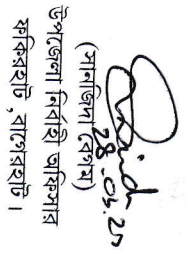 28.05.25
(সানজিদা বেগম)
উপজেলা নির্বাহী অফিসার
ফকিরহাট, বাগেরহাট।